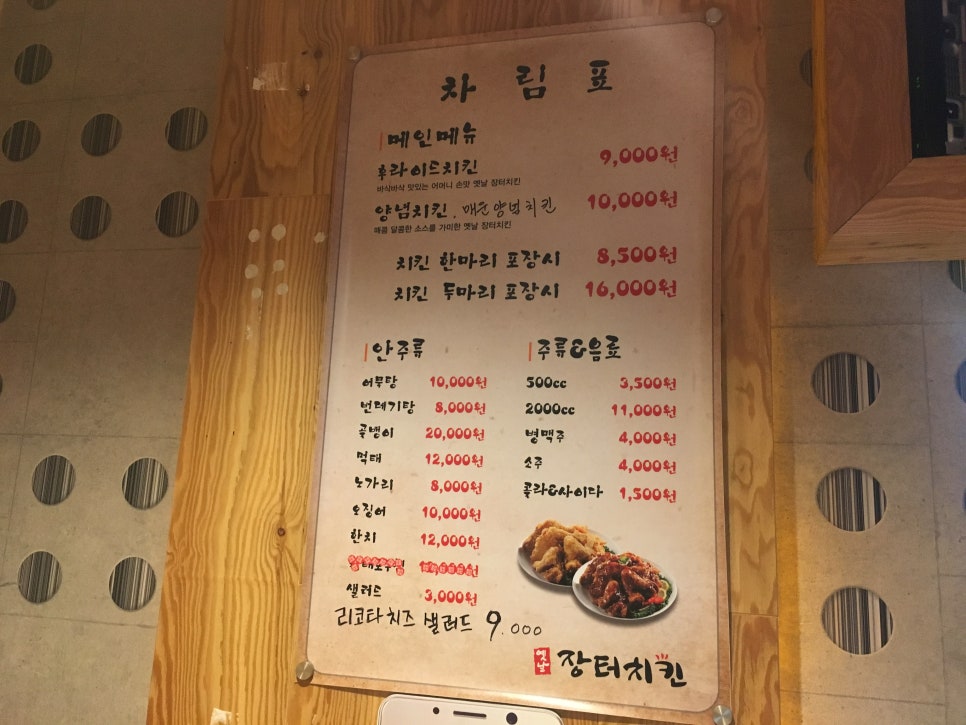 차림표
메인메뉴
후라이드치킨 9,000원
바삭바삭 맛있는 어머니 손맛 옛날 장터치킨
양념치킨. 매운양념치킨 10,000원
매콤 달콤한 소스를 가미한 옛날 장터치킨
치킨 한마리 포장시 8,500원
치킨 두마리 포장시 16,000원
안주류
어묵탕 10,000원
번데기탕 8,000원
골뱅이 20,000원
먹태 12,000원
노가리 8,000원
오징어 10,000원
한치 12,000원
샐러드 3,000원
리코타치즈 샐러드 9.000
주류&음료
500cc 3,500원
2000cc 11,000원
병맥주 4,000원
소주 4,000원
콜라&사이다 1,500원
옛날 장터치킨